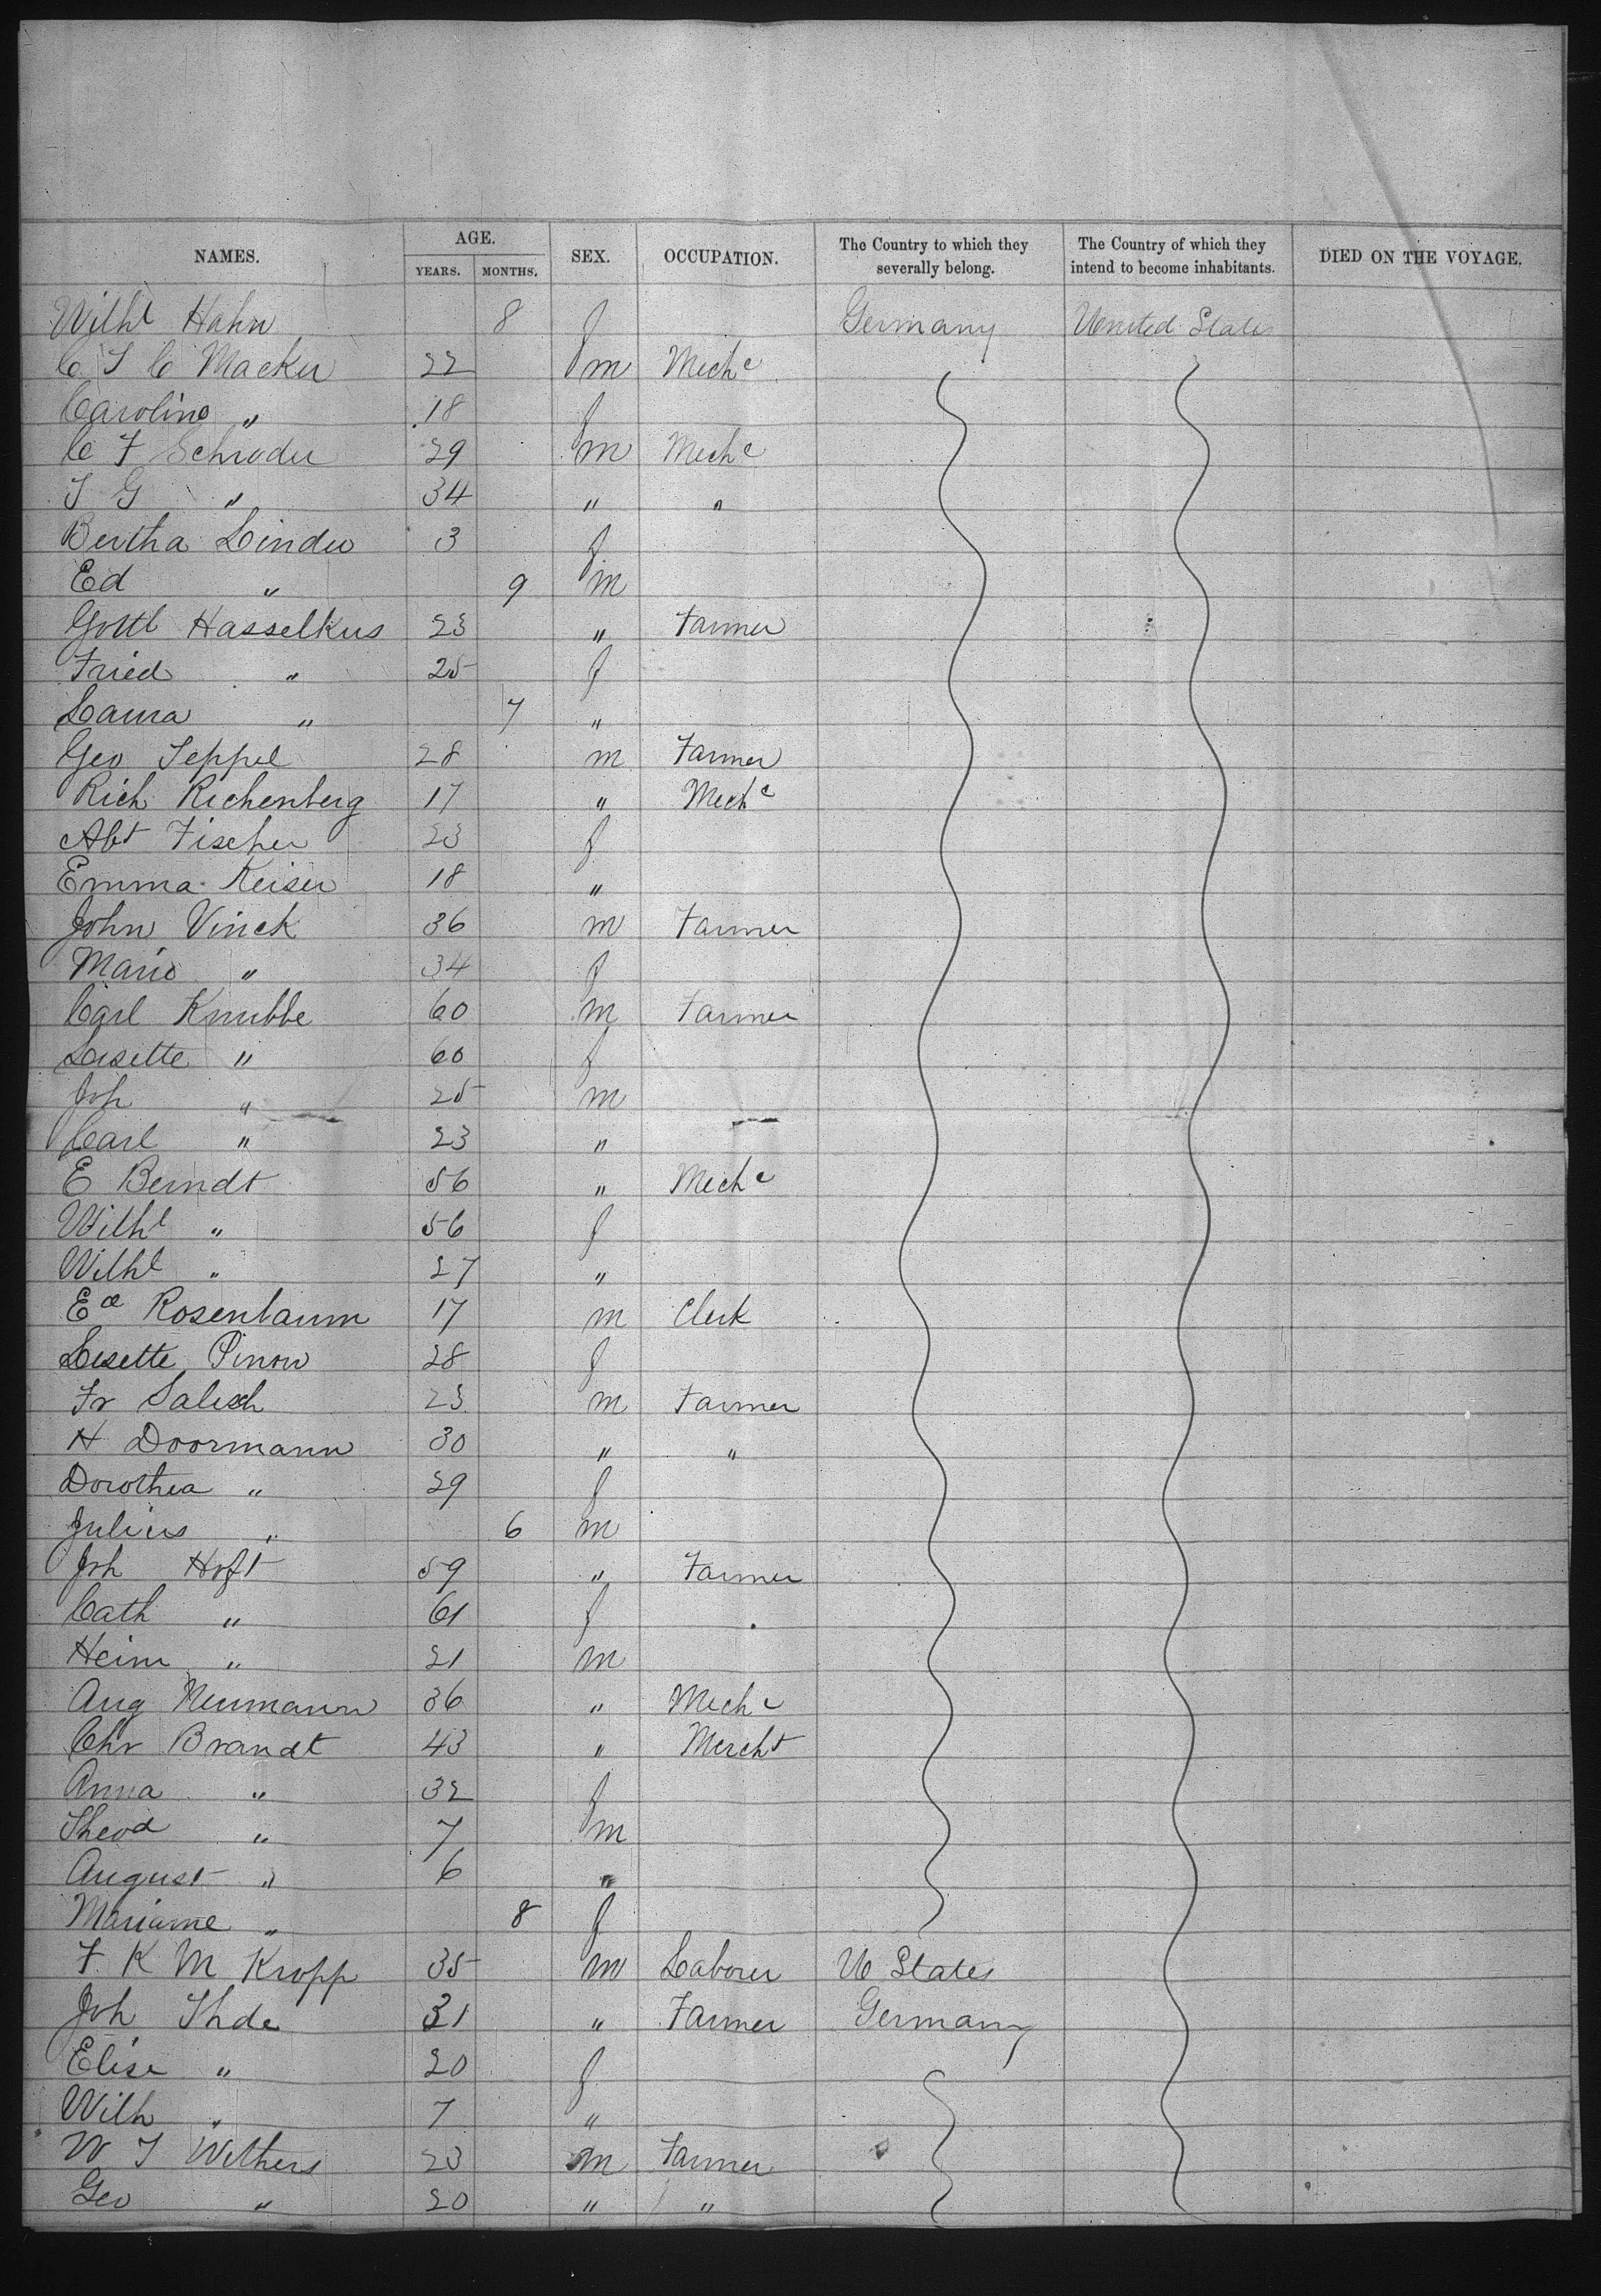 NAMES. AGE. YEARS. MONTHS. SEX. OCCUPATION. The Country to which they severally belong. The Country of which they intend to become inhabitants. DIED ON THE VOYAGE.
Wilhl Hahn 8 f Germany United States
C T C Macker 22 m Mechc
Caroline " 18 f
C F Schroder 29 m Mechc
T G " 34 " "
Bertha Linder 3 f
Ed " 9 m
Gottl Hasselkus 23 " Farmer
Fried " 25 f
Laura " 7 "
Geo Seppel 28 m Farmer
Rich Richenberg 17 " Mechc
Abt Fischer 23 f
Emma Keiser 18 "
John Vinck 36 m Farmer
Marie " 34 f
Carl Knubbe 60 m Farmer
Lisette " 60 f
Joh " 25 m
Carl " 23 "
E Berndt 56 " Mechc
Wilhl " 56 f
Wilhl " 27 "
Ed Rosenbaum 17 m Clerk
Lisette Pinow 28 f
Fr Salisch 23 m Farmer
H Doormann 30 " "
Dorothea " 29 f
Julius " 6 m
Joh Hoft 59 " Farmer
Cath " 61 f
Heinr " 21 m
Aug Neumann 36 " Mechc
Chr Brandt 43 " Mercht
Anna " 32 f
Theod " 7 m
August " 6 "
Marianne " 8 f
F K M Kropp 35 m Laborer U States
Joh Thde 31 " Farmer Germany
Elise " 20 f
Wilh " 7 "
W T Wilhers 23 m Farmer
Geo " 20 " "